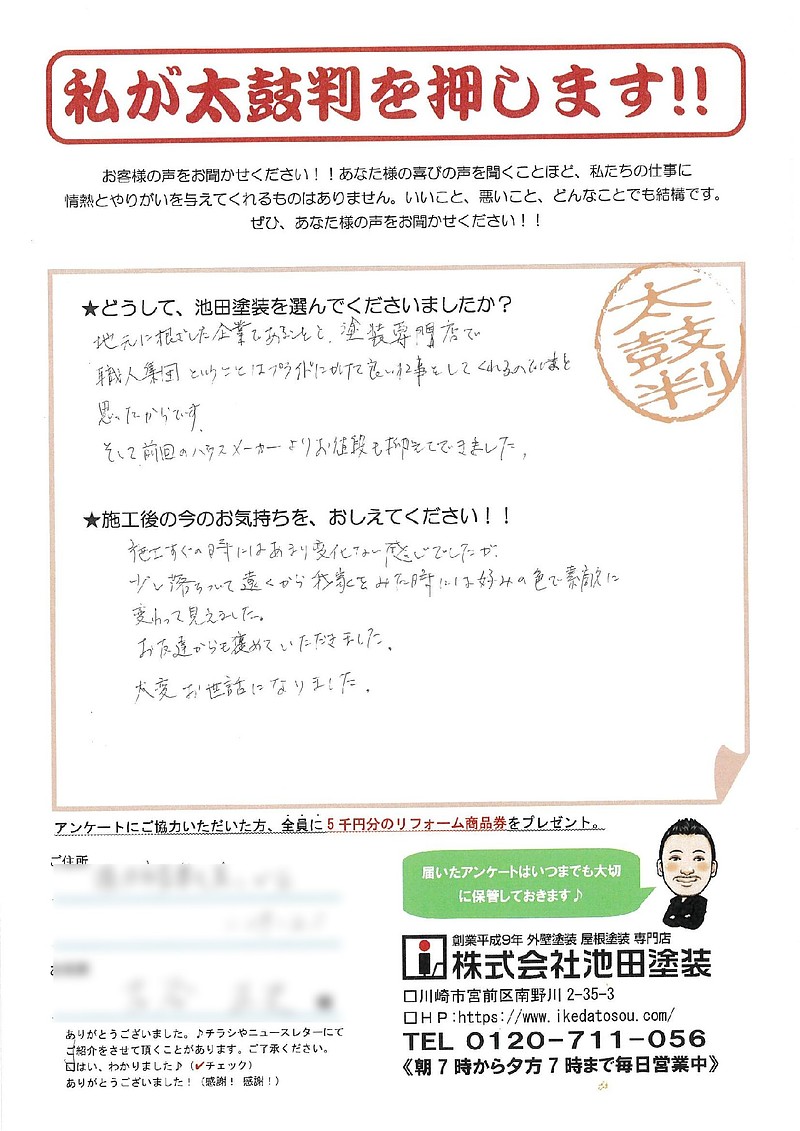 私が太鼓判を押します!!
お客様の声をお聞かせください！！あなた様の喜びの声を聞くことほど、私たちの仕事に
情熱とやりがいを与えてくれるものはありません。いいこと、悪いこと、どんなことでも結構です。
ぜひ、あなた様の声をお聞かせください！！
太鼓判
★どうして、池田塗装を選んでくださいましたか？
地元に根ざした企業であることと、塗装専門店で
職人集団ということはプライドにかけて良い仕事をしてくれるのではと
思ったからです。
そして前回のハウスメーカーよりお値段も抑えてできました。
★施工後の今のお気持ちを、おしえてください！！
施工すぐの時にはあまり変化ない感じでしたが、
少し落ちついて遠くから我家をみた時には好みの色で素敵に
変わって見えました。
お友達からも褒めていただきました。
大変お世話になりました。
アンケートにご協力いただいた方、全員に5千円分のリフォーム商品券をプレゼント。
ご住所
届いたアンケートはいつまでも大切
に保管しておきます♪
創業平成9年 外壁塗装 屋根塗装 専門店
株式会社池田塗装
□川崎市宮前区南野川2-35-3
□HP:https://www.ikedatosou.com/
TEL 0120-711-056
《朝7時から夕方7時まで毎日営業中》
ありがとうございました。♪チラシやニュースレターにて
ご紹介をさせて頂くことがあります。ご了承ください。
□はい、わかりました♪（✓チェック）
ありがとうございました！（感謝！感謝！）